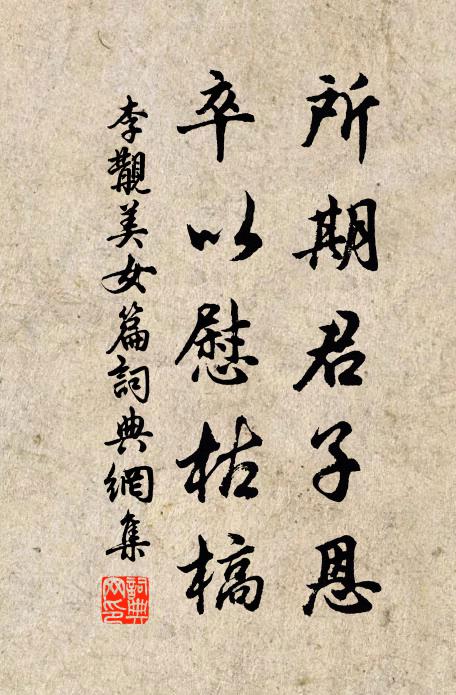 所期君子恩
卒以慰枯槁
李覯美女篇詞典網集
詞典網印